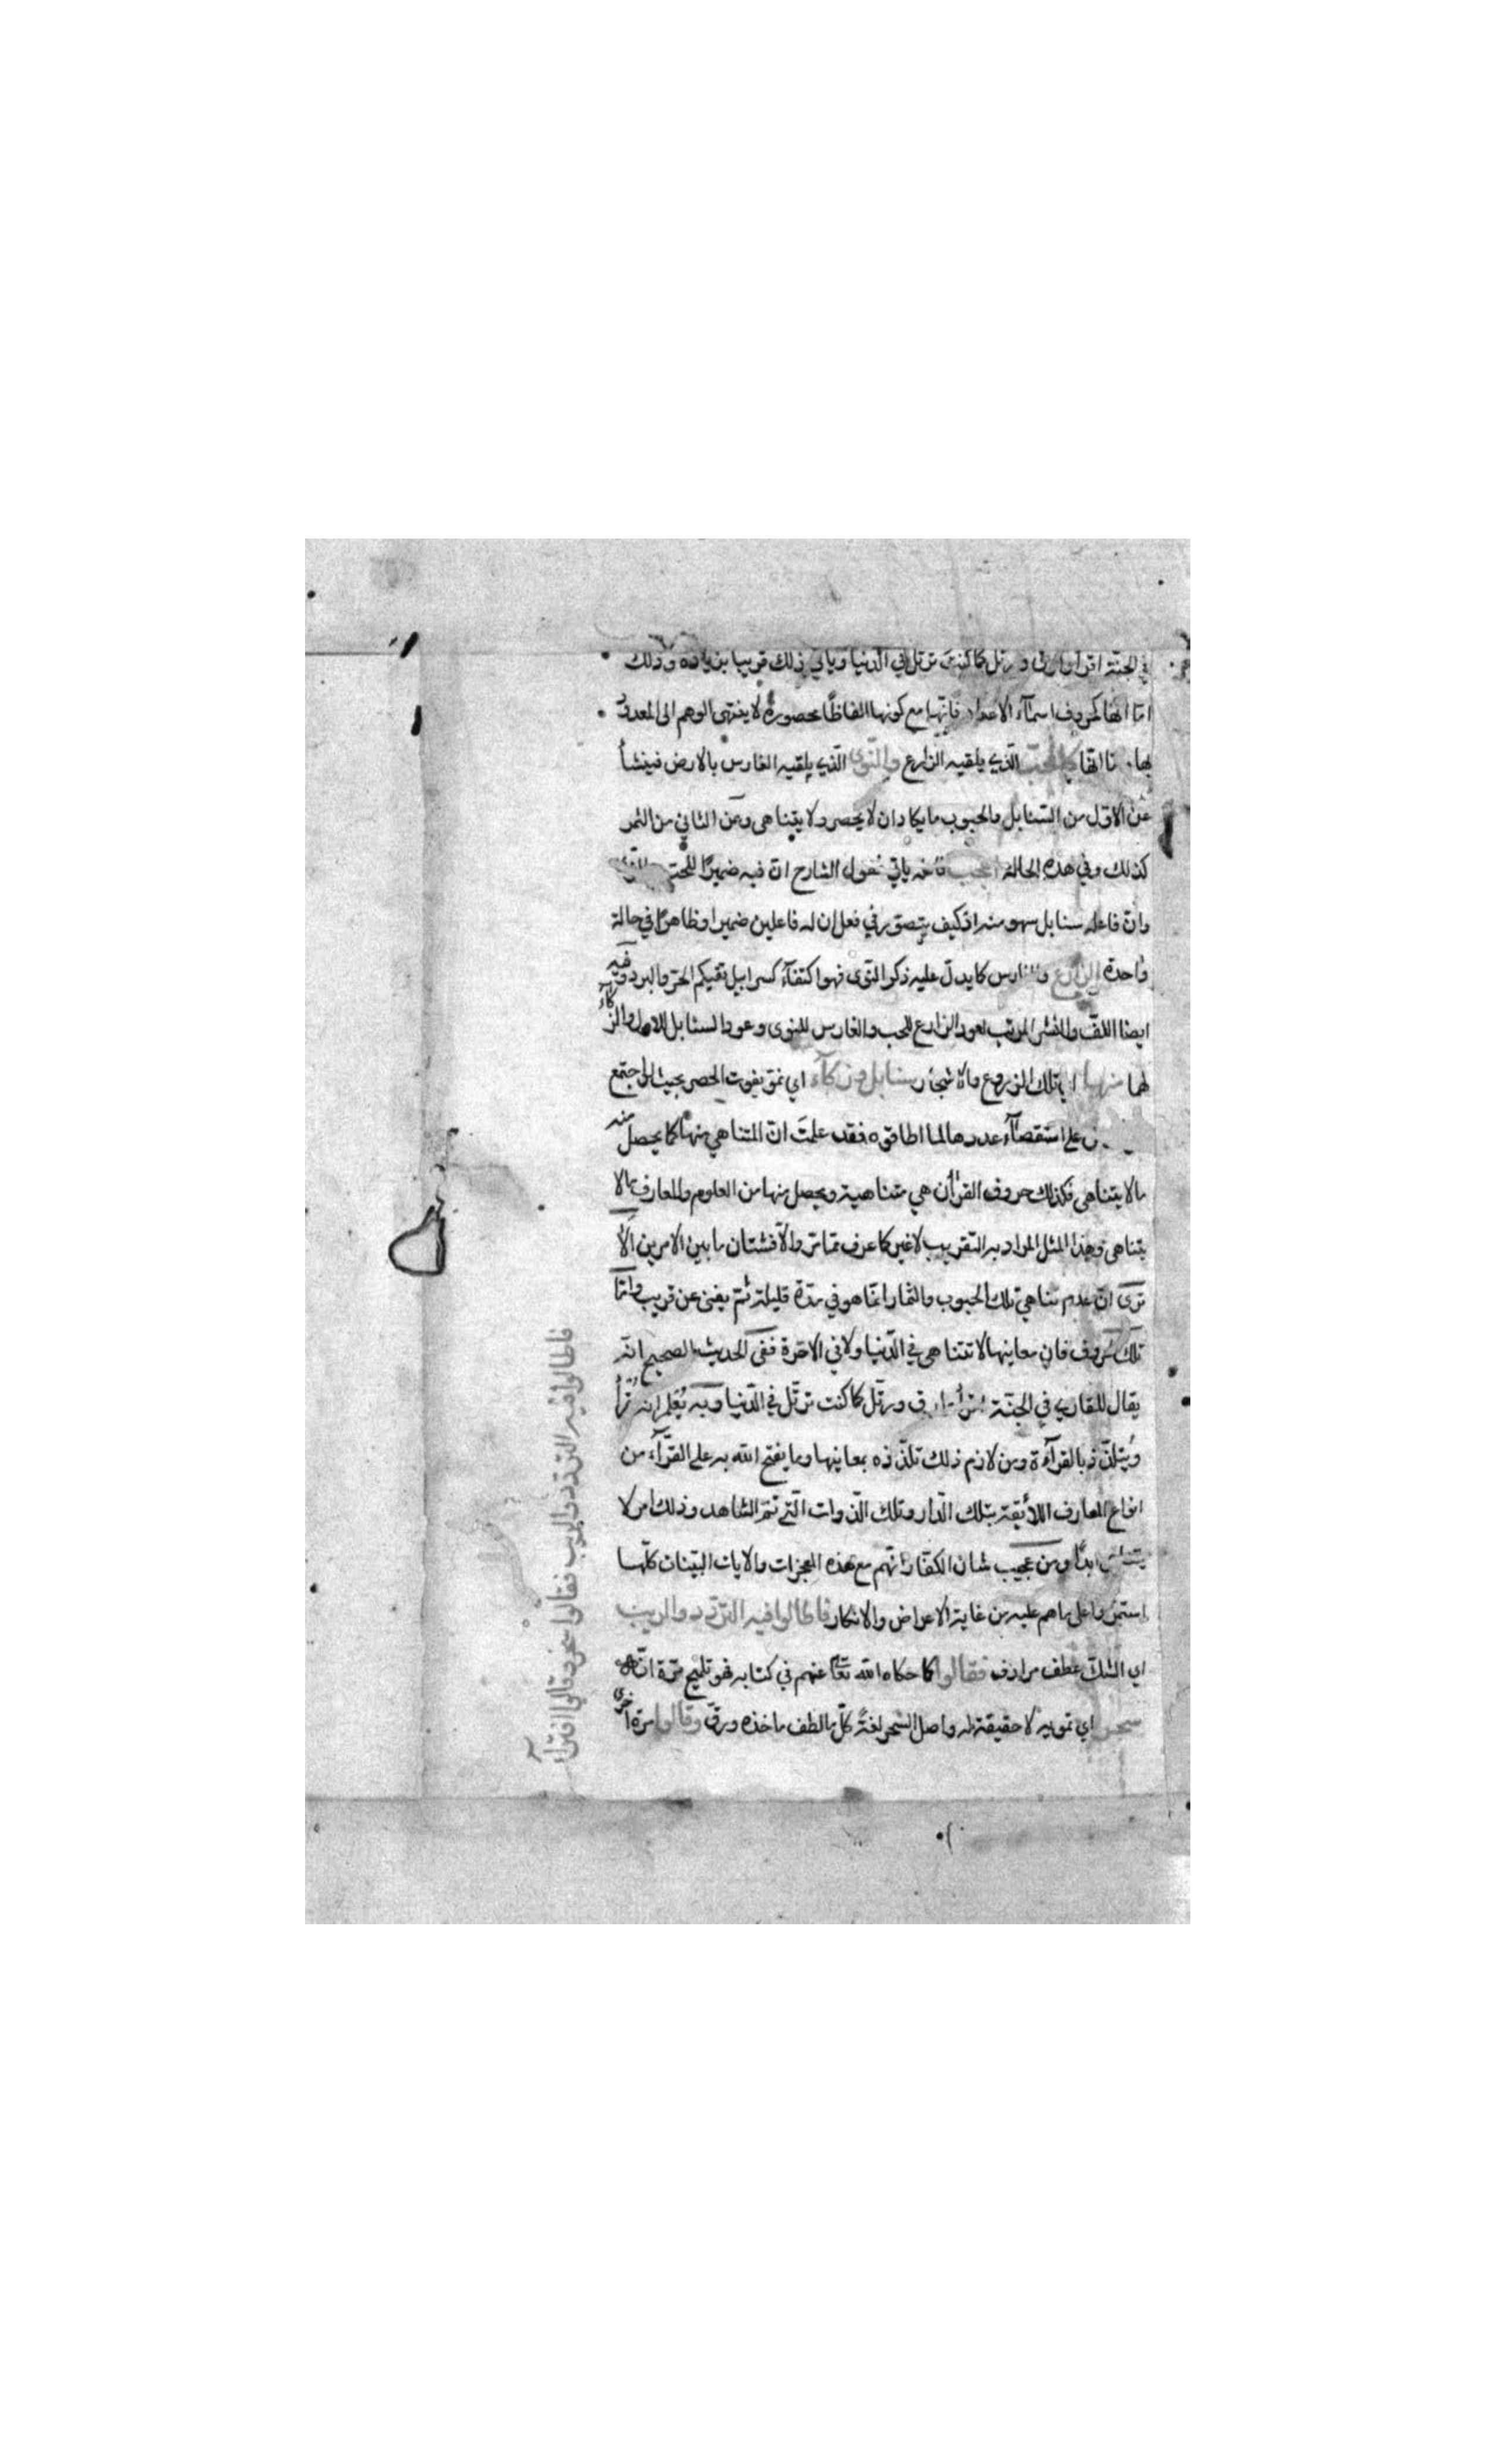 في الجنة اقرأ وارق ورتل كما كنت ترتل في الدنيا وياتي ذلك قريبا بزيادة وذلك
امّا انها كحروف اسمآء الاعداد فانّها مع كونها الفاظًا محصورة لا ينتهى الوهم الى المعدود
بها كالحبّ الّذي يلقيه الزارع والنّوى الّذي يلقيه الغارس بالارض فينشأ
عن الاوّل من السّنابل والحبوب ما يكاد ان لا يحصر ولا يتناهى وعن الثاني من الثمر
كذلك وفي هذه الحالة اعجب ياتي فقول الشارح انّ فيه ضميرًا للحبّ
وانّ فاعله سنابل سهو منه اذ كيف يتصوّر في فعل ان له فاعلين ضميرا وظاهرًا في حالة
واحدة الزارع والغارس كما يدلّ عليه ذكر النّوى فهو اكتفآء كسرابيل تقيكم الحرّ والبرد وفيه
ايضا اللفّ والنشر المرتب لعود الزارع للحب والغارس للنوى وعود السنابل للاول والزكآء
لها منها اي تلك الزروع والاشجار سنابل وزكآء اي نموّ يفوت الحصر بحيث لو اجتمع
على استقصآء عددها لما اطاقوه فقد علمتَ انّ المتناهي منها كما يحصل منه
ما لا يتناهى فكذلك حروف القرأن هي متناهية ويحصل منها من العلوم والمعارف ما لا
يتناهى وهذا المثل المراد به التقريب لا غير كما عرف ممّا مرّ والّا فشتان ما بين الامرين الَا
ترى انّ عدم تناهي تلك الحبوب والثمار انّما هو في مدّة قليلة ثمّ يفنى عن قريب وامّا
تلك الحروف فان معانيها لا تتناهى في الدّنيا ولا في الاخرة ففى الحديث الصحيح انّه
يقال للقاري في الجنّة اقرأ وارق ورتّل كما كنت ترتّل في الدّنيا وبه يُعلم انه يقرأ
ويتلذّذ بالقرآءة ومن لازم ذلك تلذّذه بمعانيها وما يفتح الله به على القرّآء من
انواع المعارف اللائقة بتلك الدّار وتلك الذّوات الّتي ثمّ الشاهد وذلك امر لا
يتناهى ابدًا ومن عجيب شان الكفّار انّهم مع هذه المعجزات والايات البيّنات كلّها
استمرّوا على ما هم عليه من غاية الاعراض والانكار فاطالوا فيه التردّد والريب
اي الشكّ عطف مرادف فقالوا كما حكاه الله تعا عنهم في كتابه فهو تلميح مرّة انّه
سحر اي تمويه لا حقيقة له واصل السّحر لغةً كلّ ما لطف ماخذه ودقّ وقالوا مرة اخرى
فاطالوا فيه التردّد والريب فقالوا سحر وقالوا افترآء